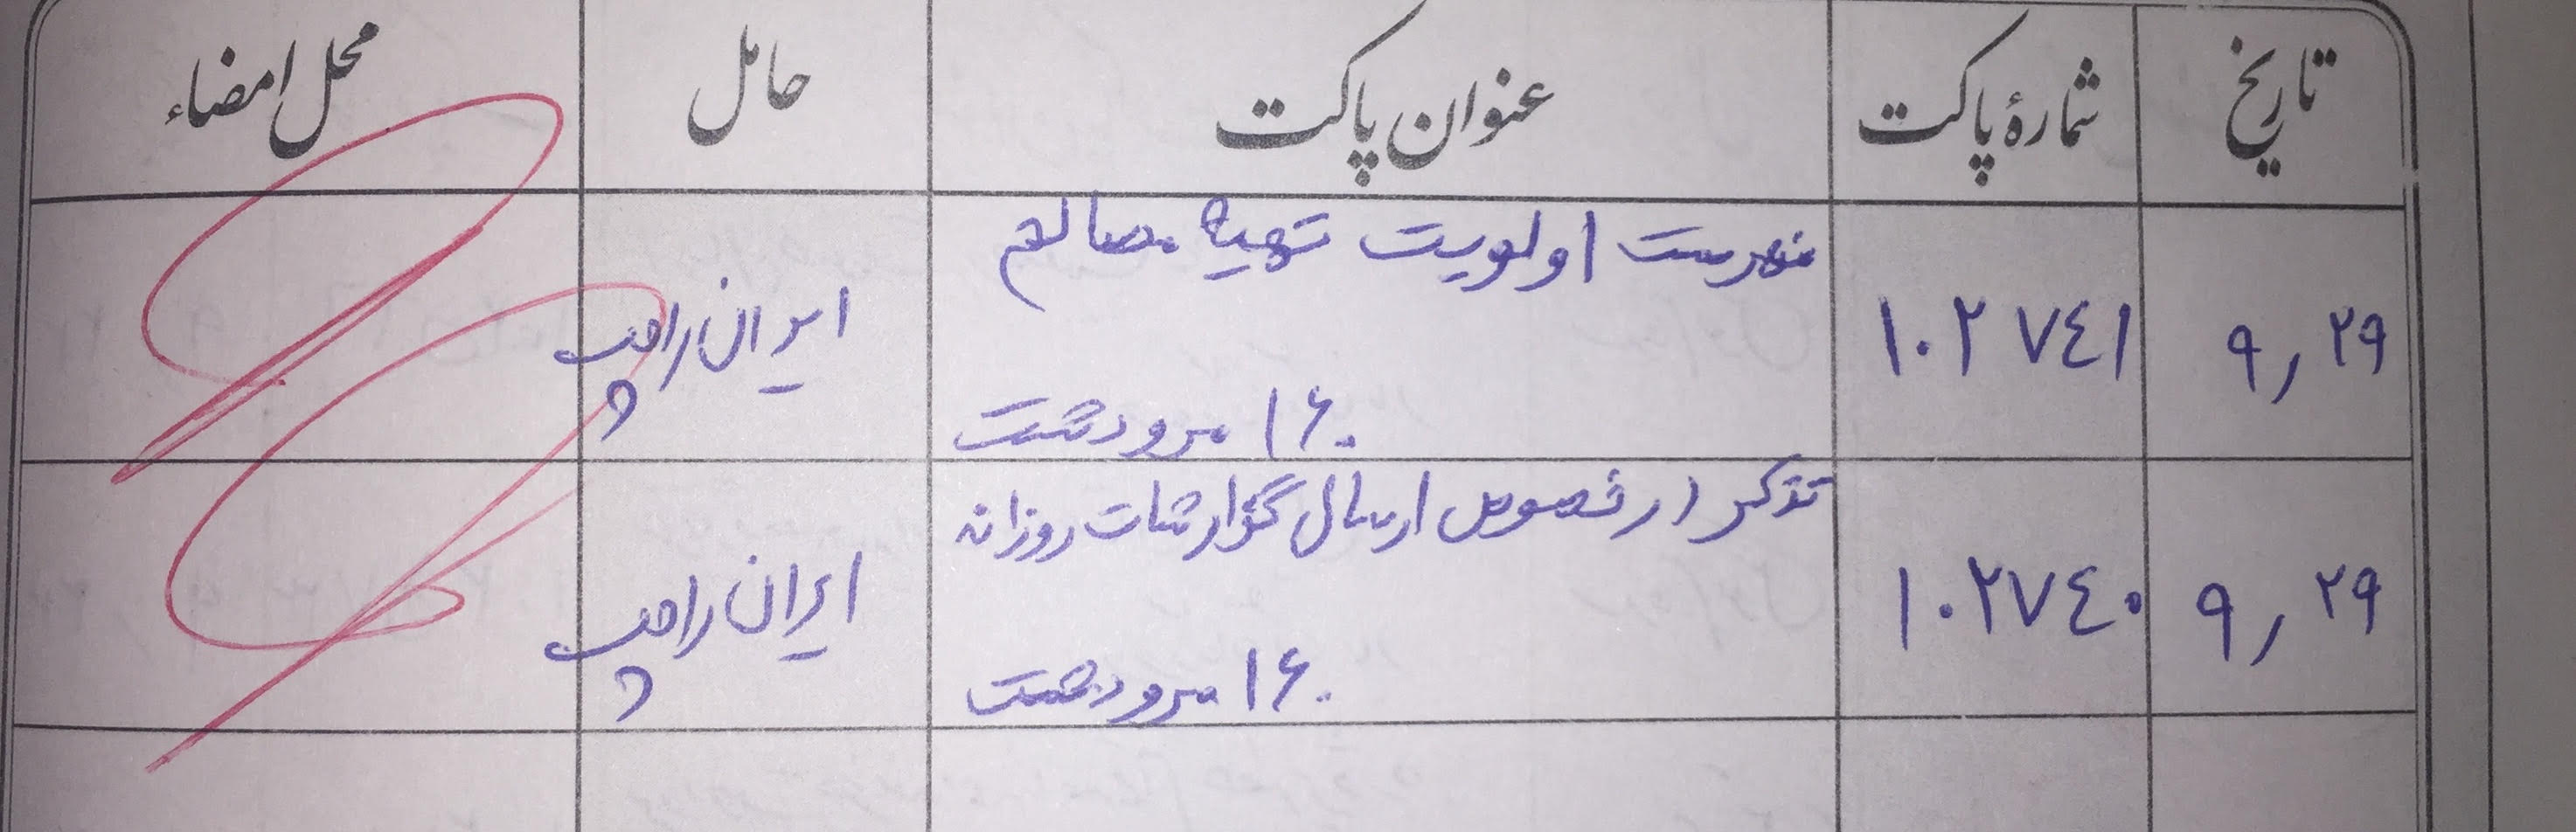 تاریخ شمارهٔ پاکت عنوان پاکت حامل محل امضاء
فهرست اولویت تهیه مصالح
۹٫۲۹ ۱۰۲۷۴۱ ایران رامپ
۱۶۰ مرودشت
تذکر در خصوص ارسال گزارشات روزانه
۹٫۲۹ ۱۰۲۷۴۰ ایران رامپ
۱۶۰ مرودشت